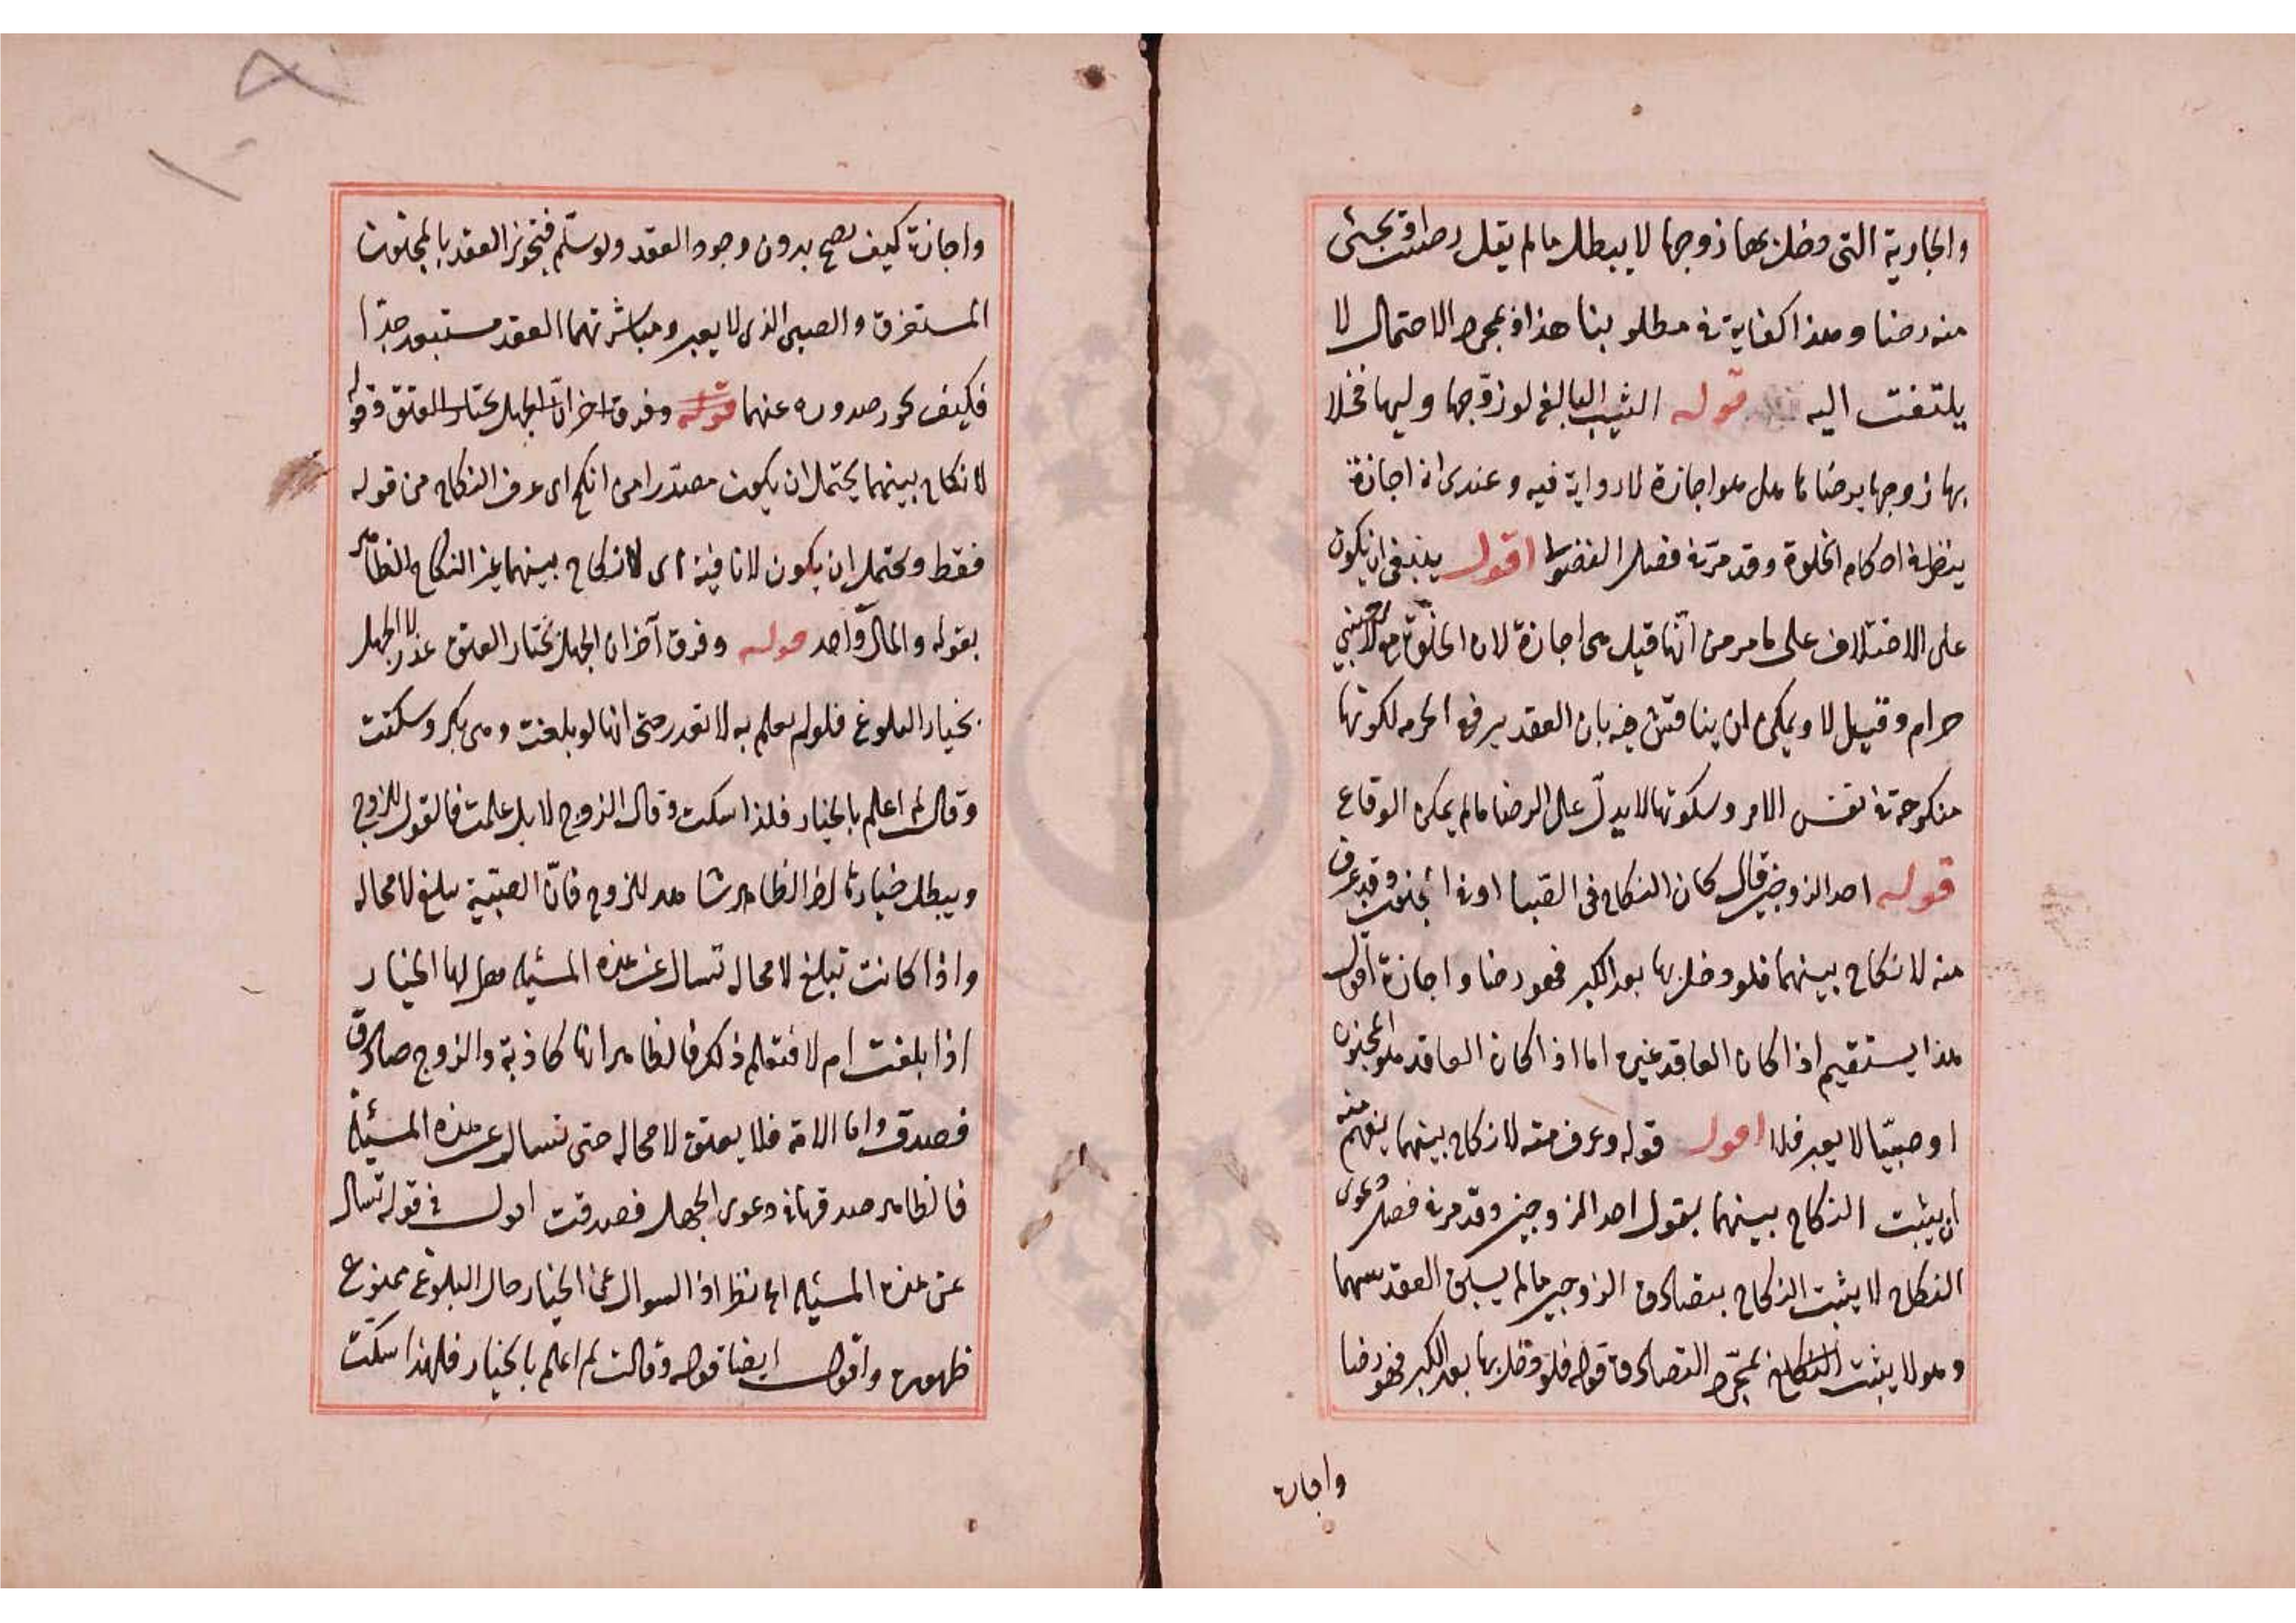 والجارية التى دخل بها زوجها لا يبطل ما لم يقل رضيت او يجئ
منه رضا وهذا كفاية فى مطلوبنا هذا فبمجرد الاحتمال لا
يلتفت اليه قوله الثيب البالغ لو زوّجها وليها فخلا
بها زوجها برضاها هل هو اجازة لا رواية فيه وعندى انه اجازة
ينظر فى احكام الخلوة وقد مر فى فصل الفضولى اقول ينبغى ان يكون
على الاختلاف على ما مر من انّها قيل هى اجازة لان الخلوة بالاجنبى
حرام وقيل لا ويمكن ان يناقش فيه بان العقد يرفع الحرمة لكونها
منكوحة فى نفس الامر وسكوتها لا يدلّ على الرضا ما لم يمكن الوقاع
قوله احد الزوجين قال كان النكاح فى الصبا او فى الجنون وقد عرف
منه لا نكاح بينهما فلو دخل بها بعد الكبر فهو رضا واجازة اقول
هذا يستقيم اذا كان العاقد غيره اما اذا كان العاقد هو المجنون
او صبيّا لا يعبر فلا اقول قوله وعرف منه لا نكاح بينهما يفهم منه
ان يثبت النكاح بينهما بقول احد الزوجين وقد مر فى فصل دعوى
النكاح لا يثبت النكاح بتصادق الزوجين ما لم يسبق العقد بينهما
وهو لا يثبت النكاح بمجرد التصادق قوله فلو دخل بها بعد الكبر فهو رضا
واجازة
واجازة كيف يصح بدون وجود العقد ولو سلّم فتجويز العقد بالمجنون
المستغرق والصبى الذى لا يعبر ومباشرتهما العقد مستبعد جدّا
فكيف يجوز صدوره عنهما قوله وفرق اخر انّ الجهل بخيار العتق وقوله
لا نكاح بينهما يحتمل ان يكون مصدرا من انكح اى عرف النكاح من قوله
فقط ويحتمل ان يكون لا نافية اى لا نكاح بينهما غير النكاح الظاهر
بقوله والمآل واحد قوله وفرق آخر ان الجهل بخيار العتق عذر لا الجهل
بخيار البلوغ فلو لم يعلم به لا تعذر حتى انها لو بلغت وهى بكر وسكتت
وقالت لم اعلم بالخيار فلذا سكت وقال الزوج لا بل علمت فالقول للزوج
ويبطل خيارها لان الظاهر شاهد للزوج فانّ الصبيّة تبلغ لا محالة
واذا كانت تبلغ لا محالة تسال عن هذه المسئلة هل لها الخيار
اذا بلغت ام لا فتعلم ذلك فالظاهر انها كاذبة والزوج صادق
فصدق واما الامة فلا يعتق لا محالة حتى تسال عن هذه المسئلة
فالظاهر صدقها فى دعوى الجهل فصدقت اقول فى قوله تسال
عن هذه المسئلة نظر اذ السوال عن الخيار حال البلوغ ممنوع
ظهوره واقول ايضا قوله وقالت لم اعلم بالخيار فلهذا سكتّ